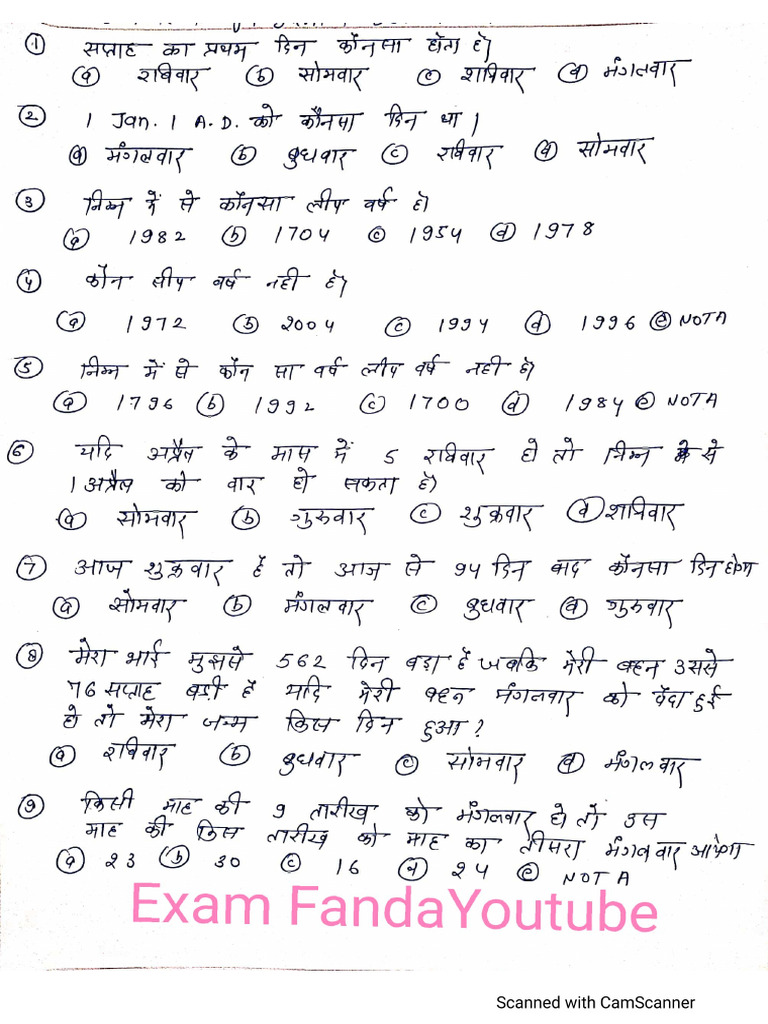 ① सप्ताह का प्रथम दिन कौनसा होता है।
ⓐ रविवार ⓑ सोमवार ⓒ शनिवार ⓓ मंगलवार
② 1 Jan. 1 A.D. को कौनसा दिन था।
ⓐ मंगलवार ⓑ बुधवार ⓒ रविवार ⓓ सोमवार
③ निम्न में से कौनसा लीप वर्ष है।
ⓐ 1982 ⓑ 1704 ⓒ 1954 ⓓ 1978
④ कौन लीप वर्ष नही है।
ⓐ 1972 ⓑ 2004 ⓒ 1994 ⓓ 1996 ⓔ NOTA
⑤ निम्न में से कौन सा वर्ष लीप वर्ष नही है।
ⓐ 1796 ⓑ 1992 ⓒ 1700 ⓓ 1984 ⓔ NOTA
⑥ यदि अप्रैल के मास में 5 रविवार हो तो निम्न से
1 अप्रैल को वार हो सकता है।
ⓐ सोमवार ⓑ गुरुवार ⓒ शुक्रवार ⓓ शनिवार
⑦ आज शुक्रवार है तो आज से 94 दिन बाद कौनसा दिन होगा
ⓐ सोमवार ⓑ मंगलवार ⓒ बुधवार ⓓ गुरुवार
⑧ मेरा भाई मुझसे 562 दिन बड़ा है जबकि मेरी बहन उससे
76 सप्ताह बड़ी है यदि मेरी बहन मंगलवार को पैदा हुई
हो तो मेरा जन्म किस दिन हुआ?
ⓐ रविवार ⓑ बुधवार ⓒ सोमवार ⓓ मंगलवार
⑨ किसी माह की 9 तारीख को मंगलवार हो तो उस
माह की किस तारीख को माह का तीसरा मंगलवार आयेगा
ⓐ 23 ⓑ 30 ⓒ 16 ⓓ 24 ⓔ NOTA
Exam FandaYoutube
Scanned with CamScanner